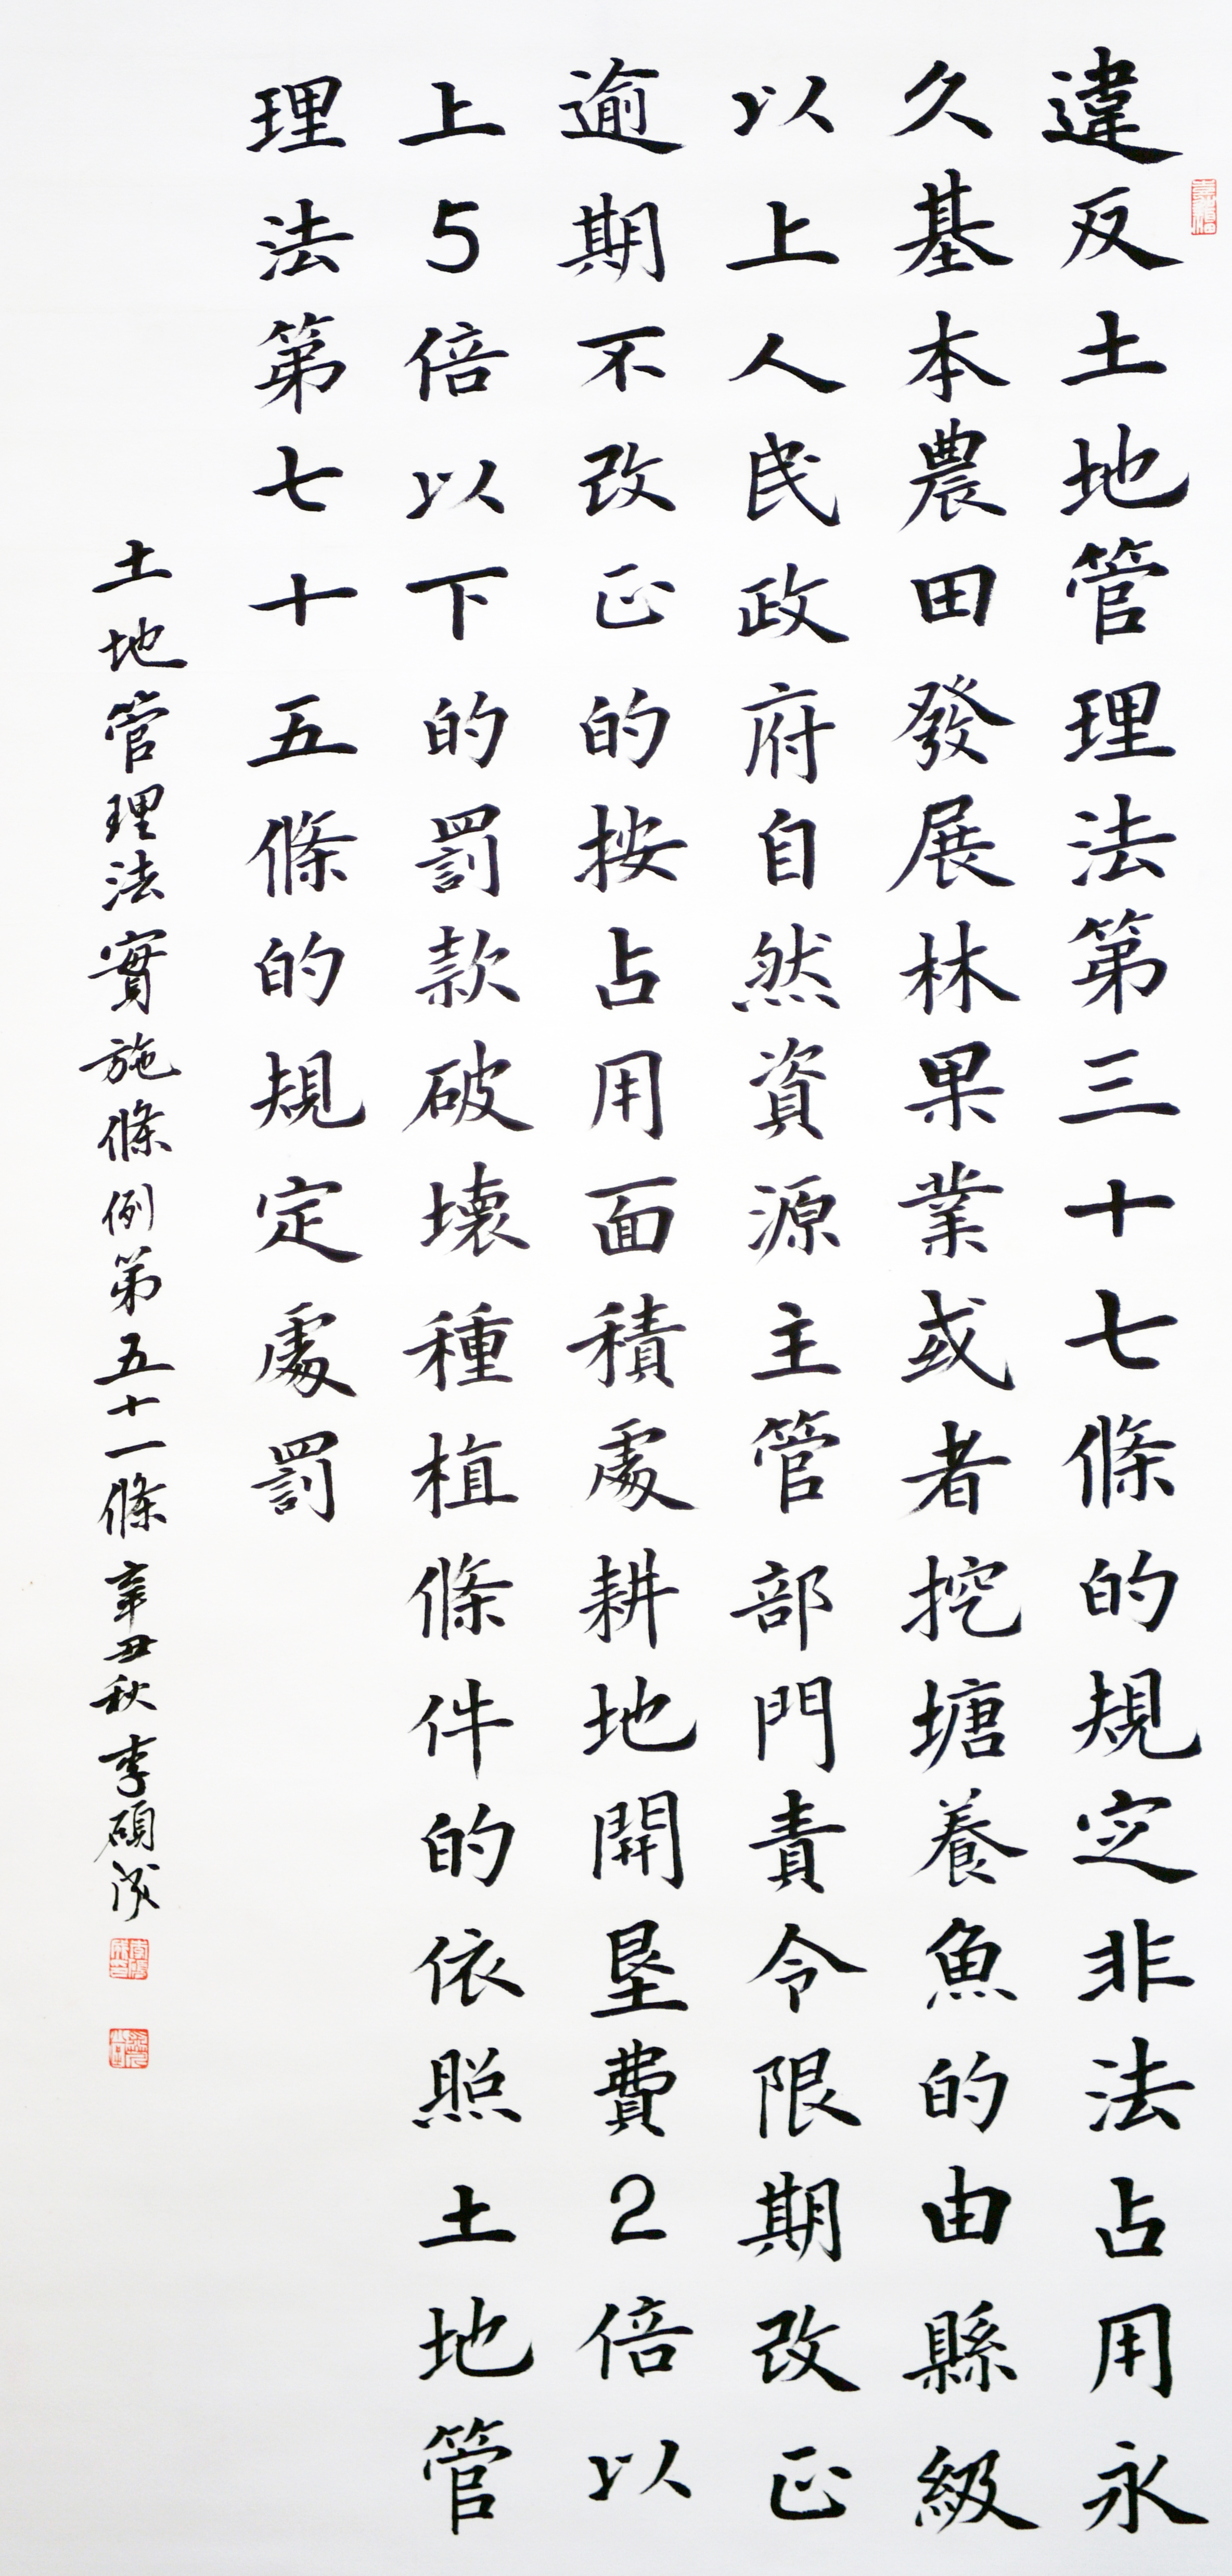 違反土地管理法第三十七條的規定非法占用永
久基本農田發展林果業或者挖塘養魚的由縣級
以上人民政府自然資源主管部門責令限期改正
逾期不改正的按占用面積處耕地開墾費2倍以
上5倍以下的罰款破壞種植條件的依照土地管
理法第七十五條的規定處罰
土地管理法實施條例第五十一條辛丑秋李碩成